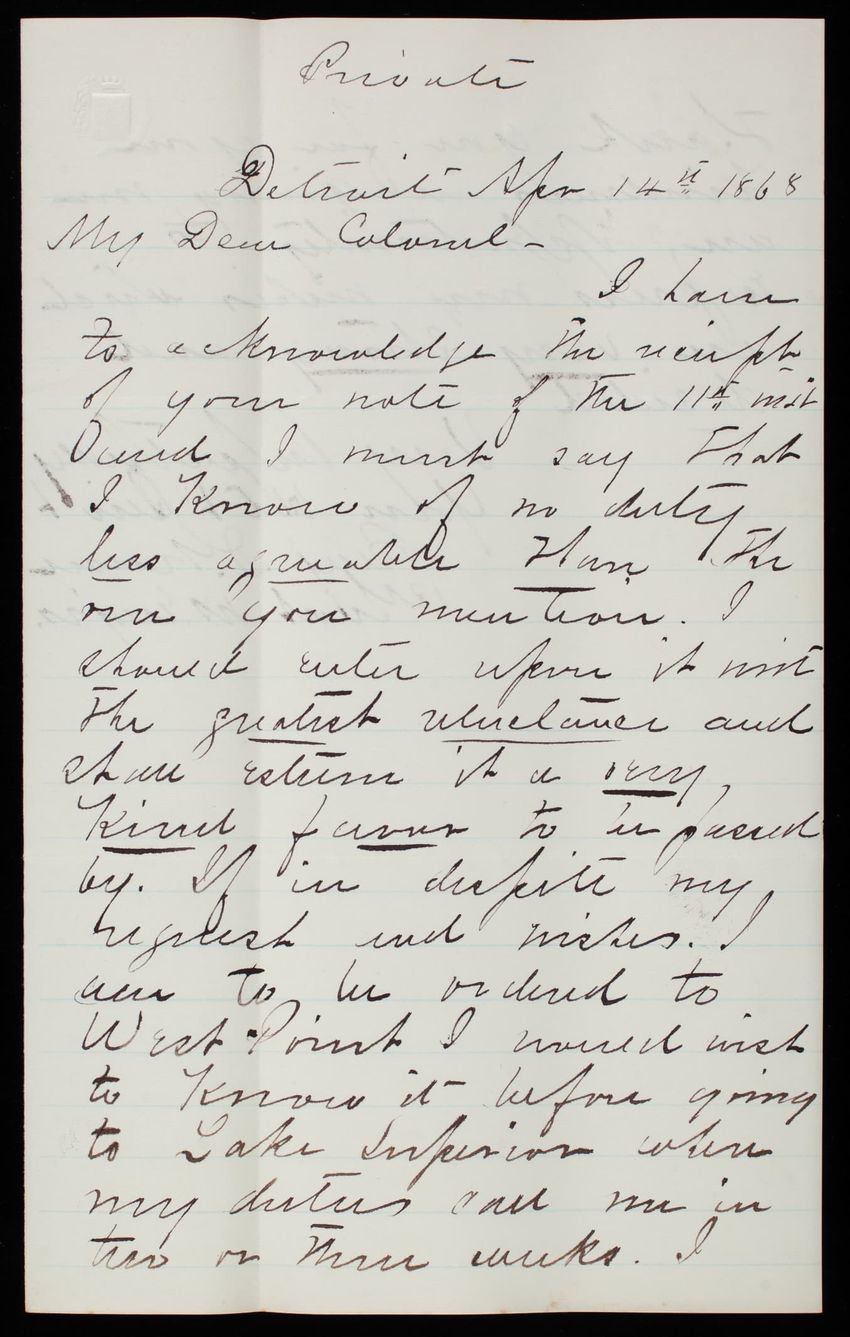 Private
Detroit Apr 14th 1868
My Dear Colonel -
I have
to acknowledge the receipt
of your note of the 11th inst
and I must say that
I Know of no duty
less agreeable than the
one you mention. I
should enter upon it with
the greatest reluctance and
shall esteem it a very
Kind favor to be passed
by. If in despite my
request and wishes. I
am to be ordered to
West Point I would wish
to Know it before going
to Lake Superior when
my duties call me in
two or three weeks. I